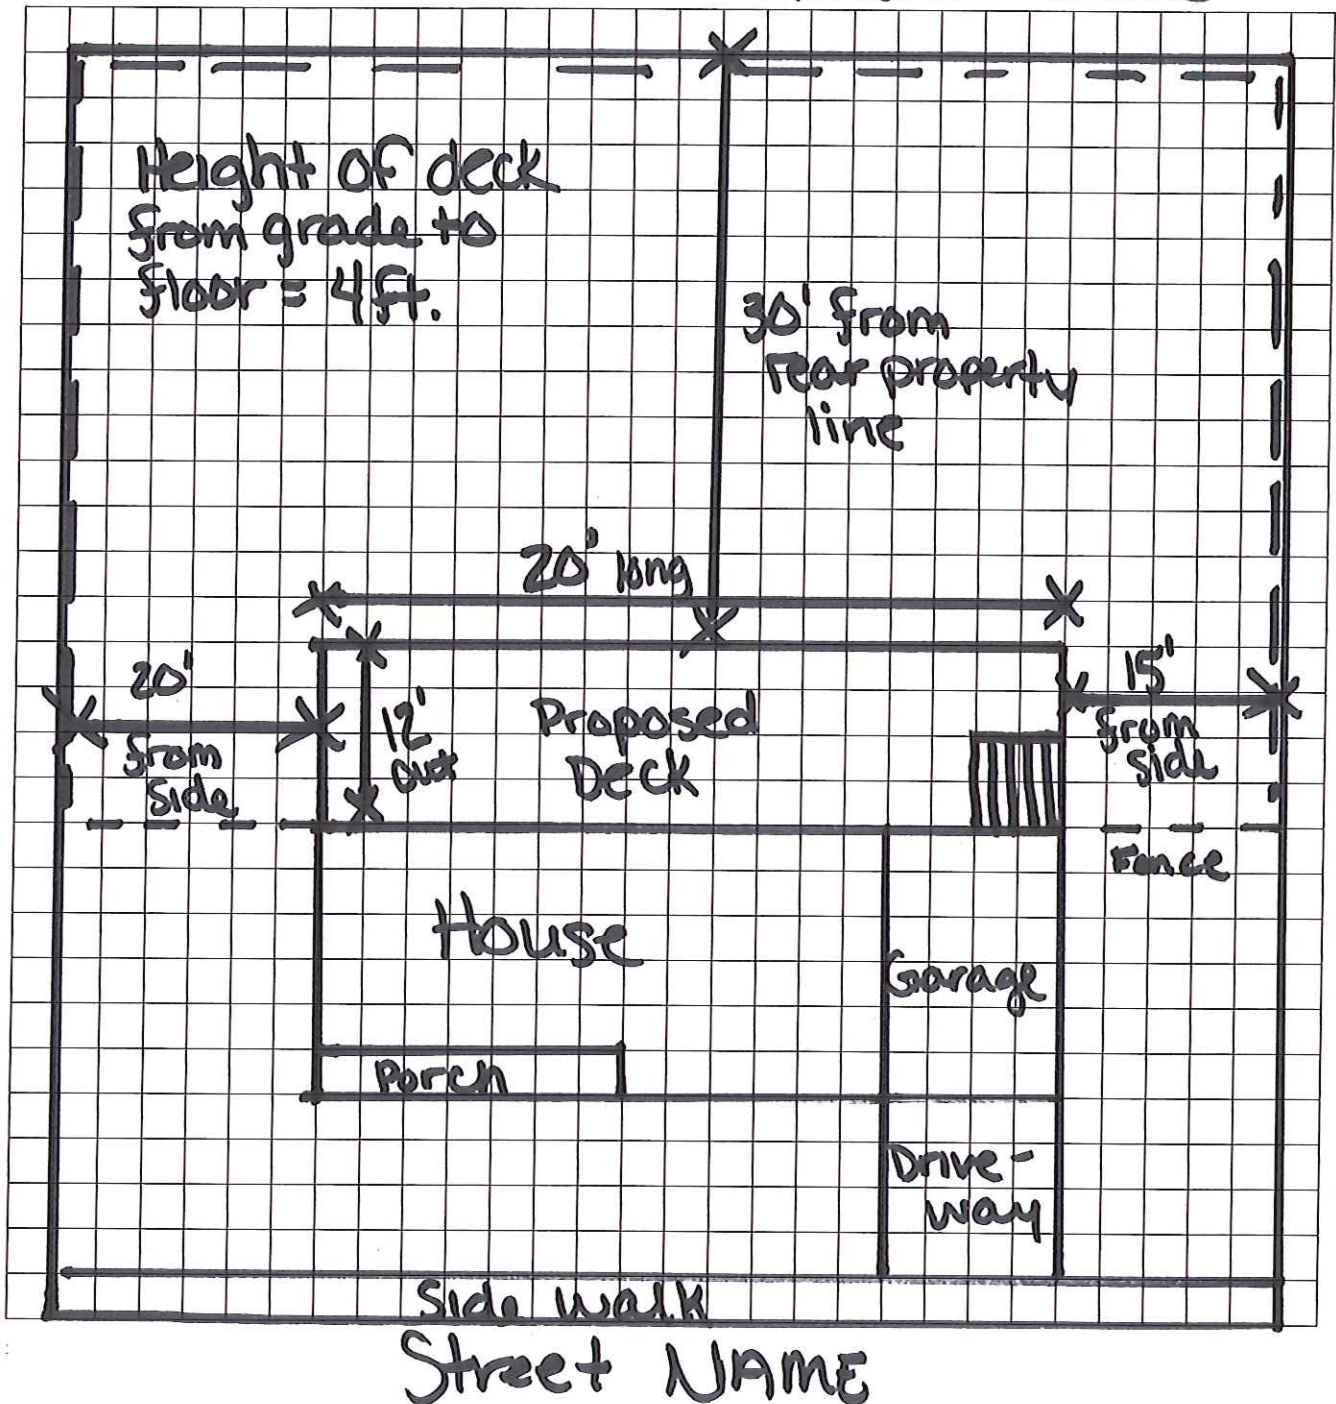 Height of deck
from grade to
floor = 4ft.
30' from
rear property
line
20' long
20'
from
side
12'
out
Proposed
Deck
15'
from
side
Fence
House
Garage
Porch
Drive-
way
Side walk
Street NAME